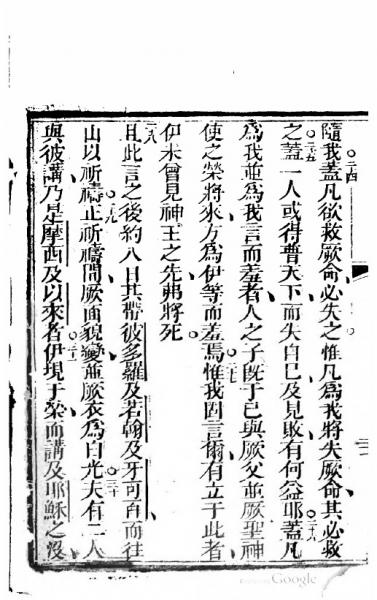 隨我蓋凡欲救厥命必失之惟凡為我將失厥命其必救
之蓋一人或得普天下而失自己及見敗有何益耶蓋凡
為我並為我言而羞者人之子既于己與厥父並厥聖神
使之榮將來方為伊等而羞焉惟我固言爾有立于此者
伊未曾見神王之先弗將死
且此言之後約八日其帶彼多羅及若翰及牙可百而往
山以祈禱正祈禱間厥面貌變並厥衣為白光夫有二人
與彼講乃是摩西及以來者伊現于榮而講及耶穌之沒
Google